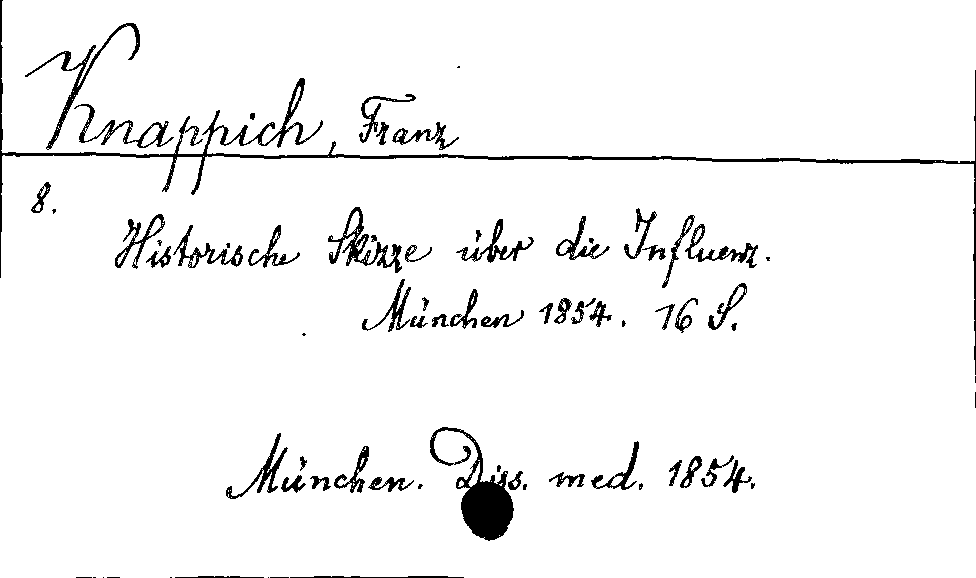 Knappich, Franz
8.
Historische Skizze über die Influenz.
München 1854. 16 S.
München. Diss. med. 1854.